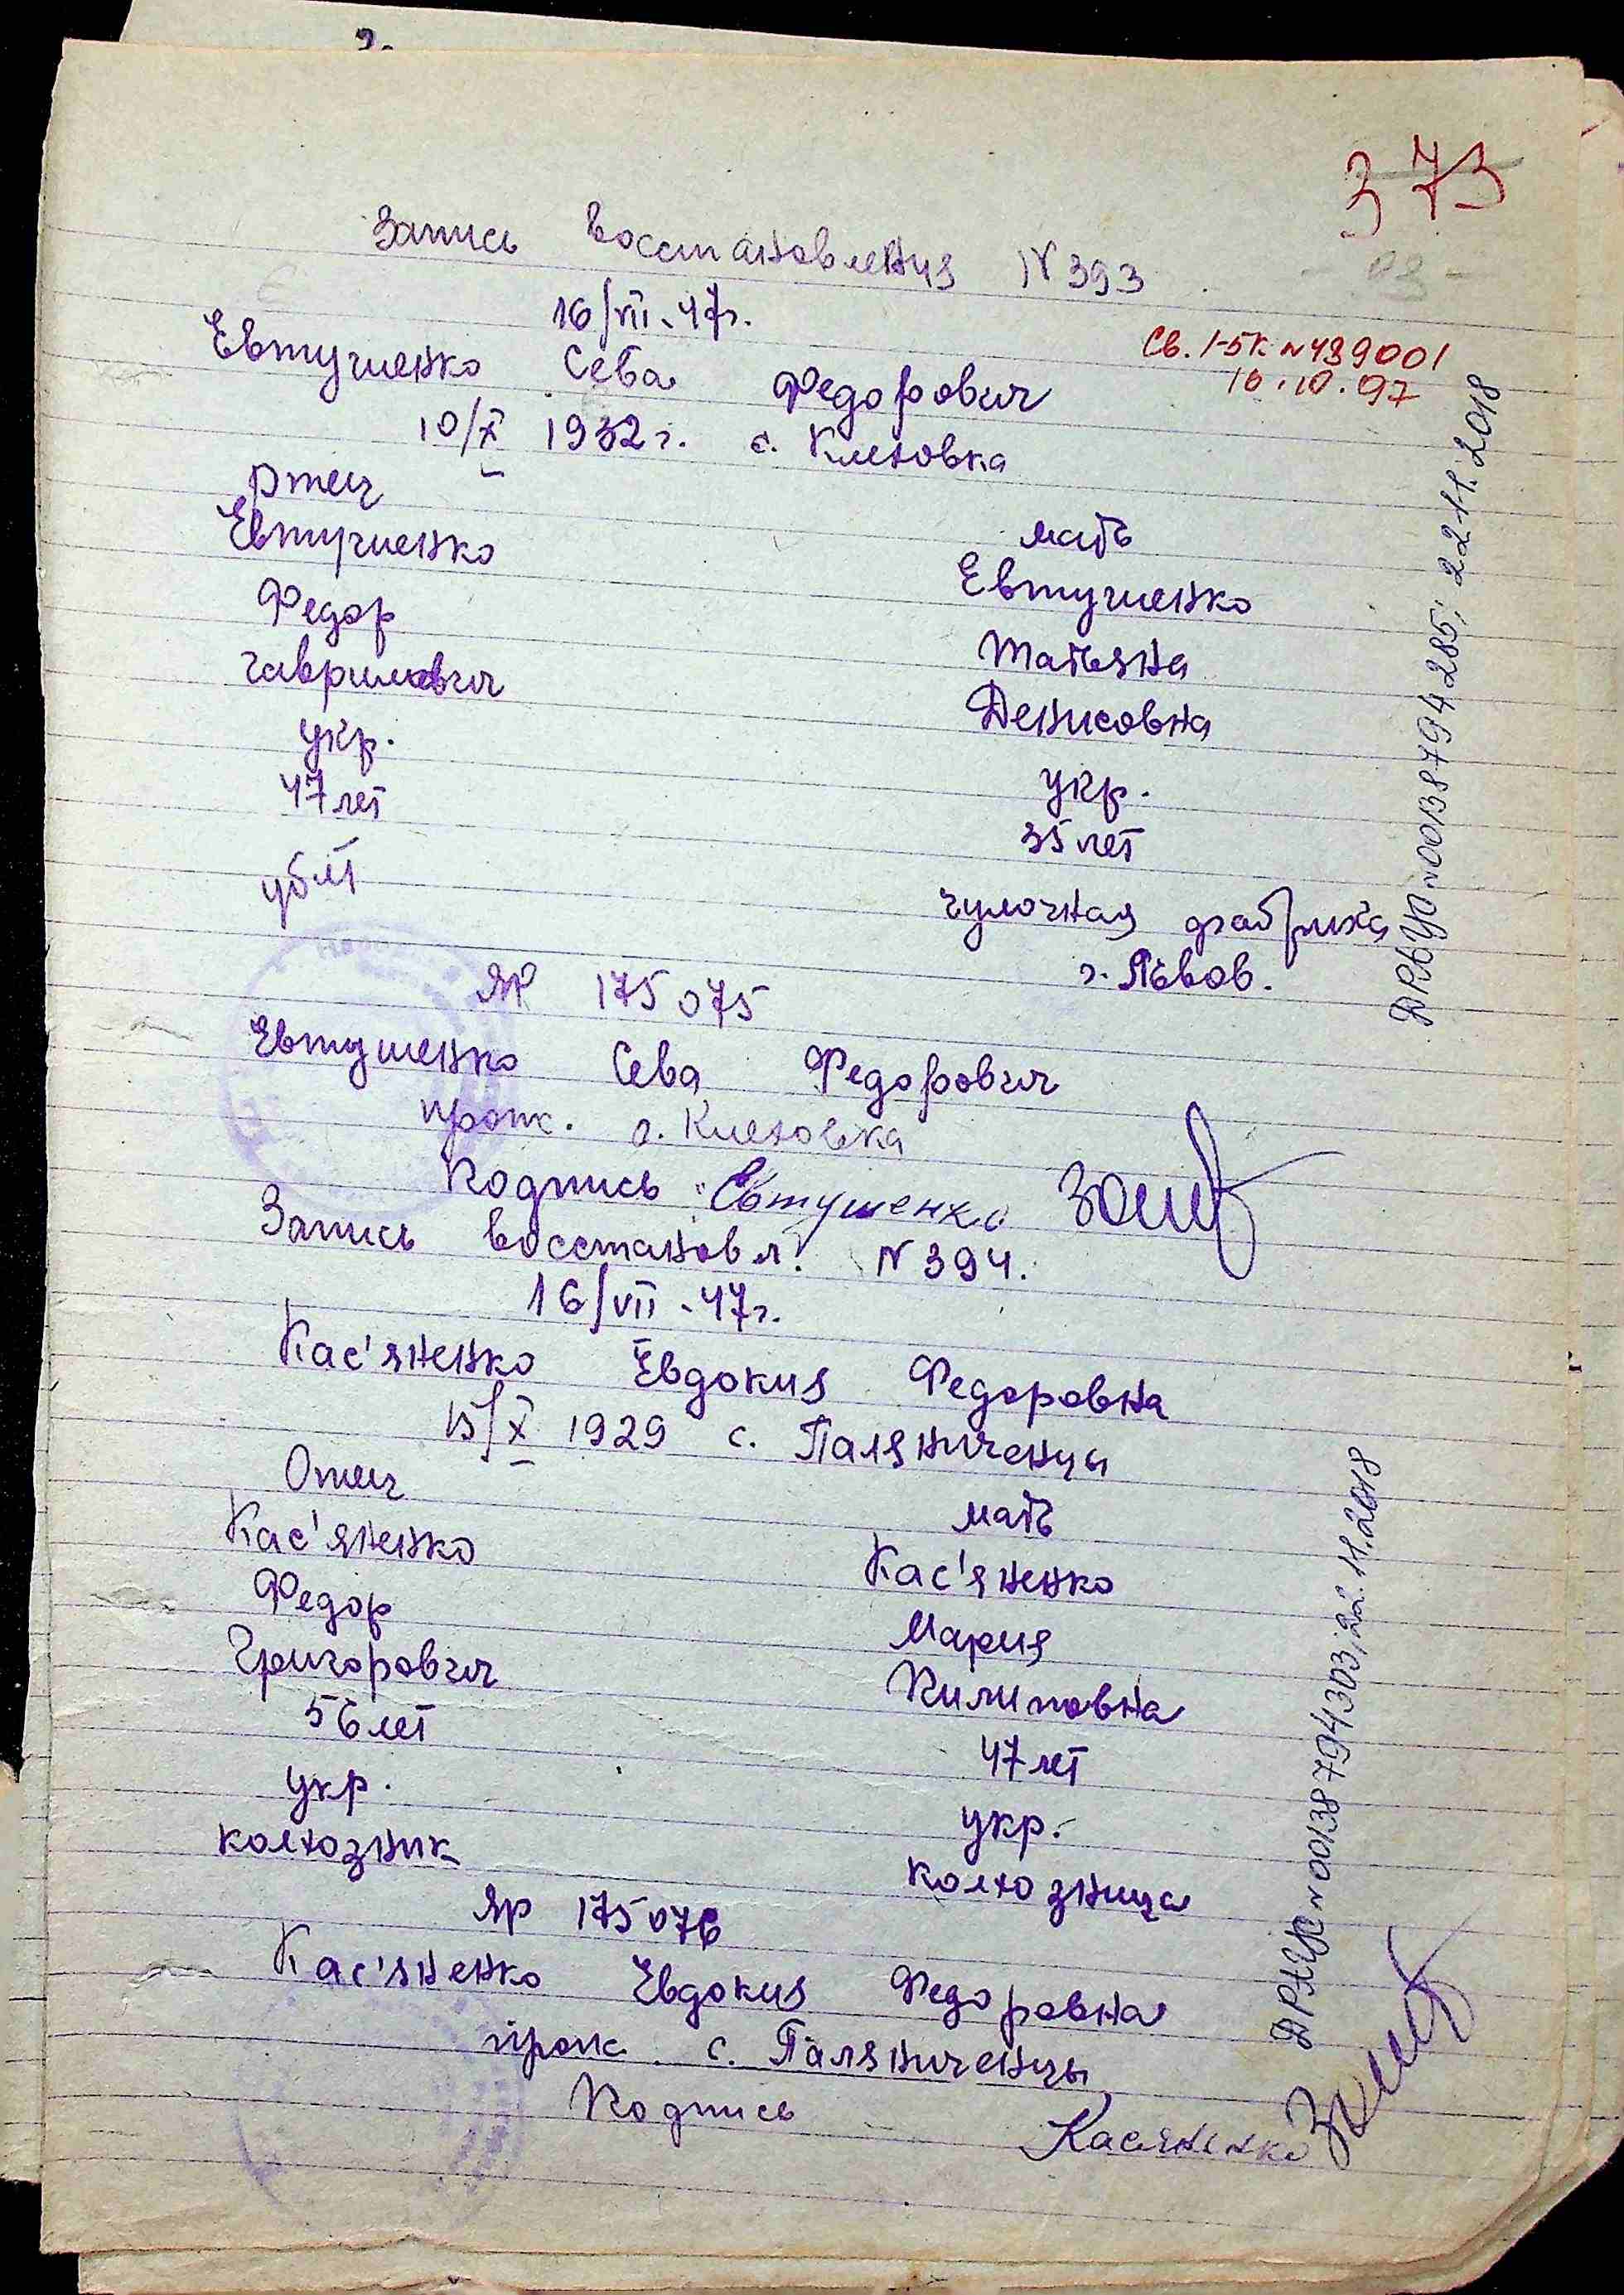 373
Запись восстановления N 393
16/VII-47г.
Св. I-БК N 439001
16.10.97
Евтушенко Сева Федорович
10/X 1932 г. с. Клеховка
Отец
мать
Евтушенко
Евтушенко
Федор
Татьяна
Гаврилович
Денисовна
укр.
укр.
47 лет
35 лет
убит
чулочная фабрика
г. Львов.
ЯР 175075
Евтушенко Сева Федорович
прож. с. Клеховка
Подпись: Евтушенко
Запись восстановл. N 394.
16/VII-47г.
Кас'яненко Евдокия Федоровна
15/X 1929 с. Паляниченцы
Отец
мать
Кас'яненко
Кас'яненко
Федор
Мария
Григорович
Пилиповна
56 лет
47 лет
укр.
укр.
колхозник
колхозница
ЯР 175076
Кас'яненко Евдокия Федоровна
прож. с. Паляниченцы
Подпись
Касяненко
ДРАЦС N 00138794285; 22.11.2018
ДРАЦС N 00138794303; 22.11.2018